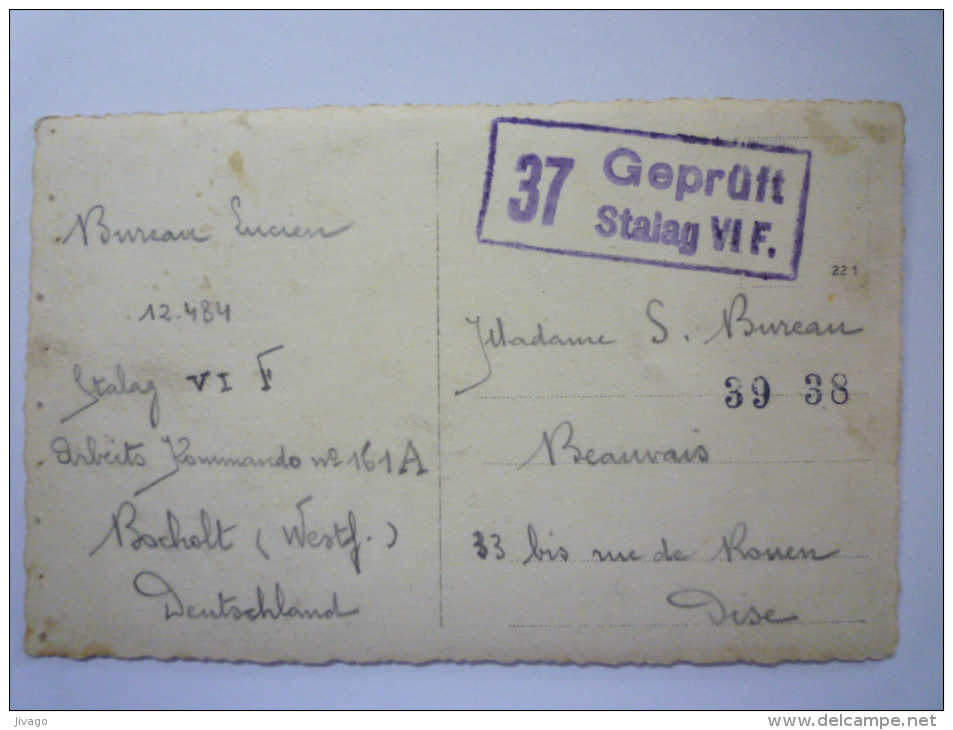 Bureau Lucien
12.484
Stalag VI F
Arbeits Kommando nº 161 A
Bocholt (Westf.)
Deutschland
37 Geprüft
Stalag VI F.
221
Madame S. Bureau
39 38
Beauvais
33 bis rue de Rouen
Oise
Jivago
www.delcampe.net